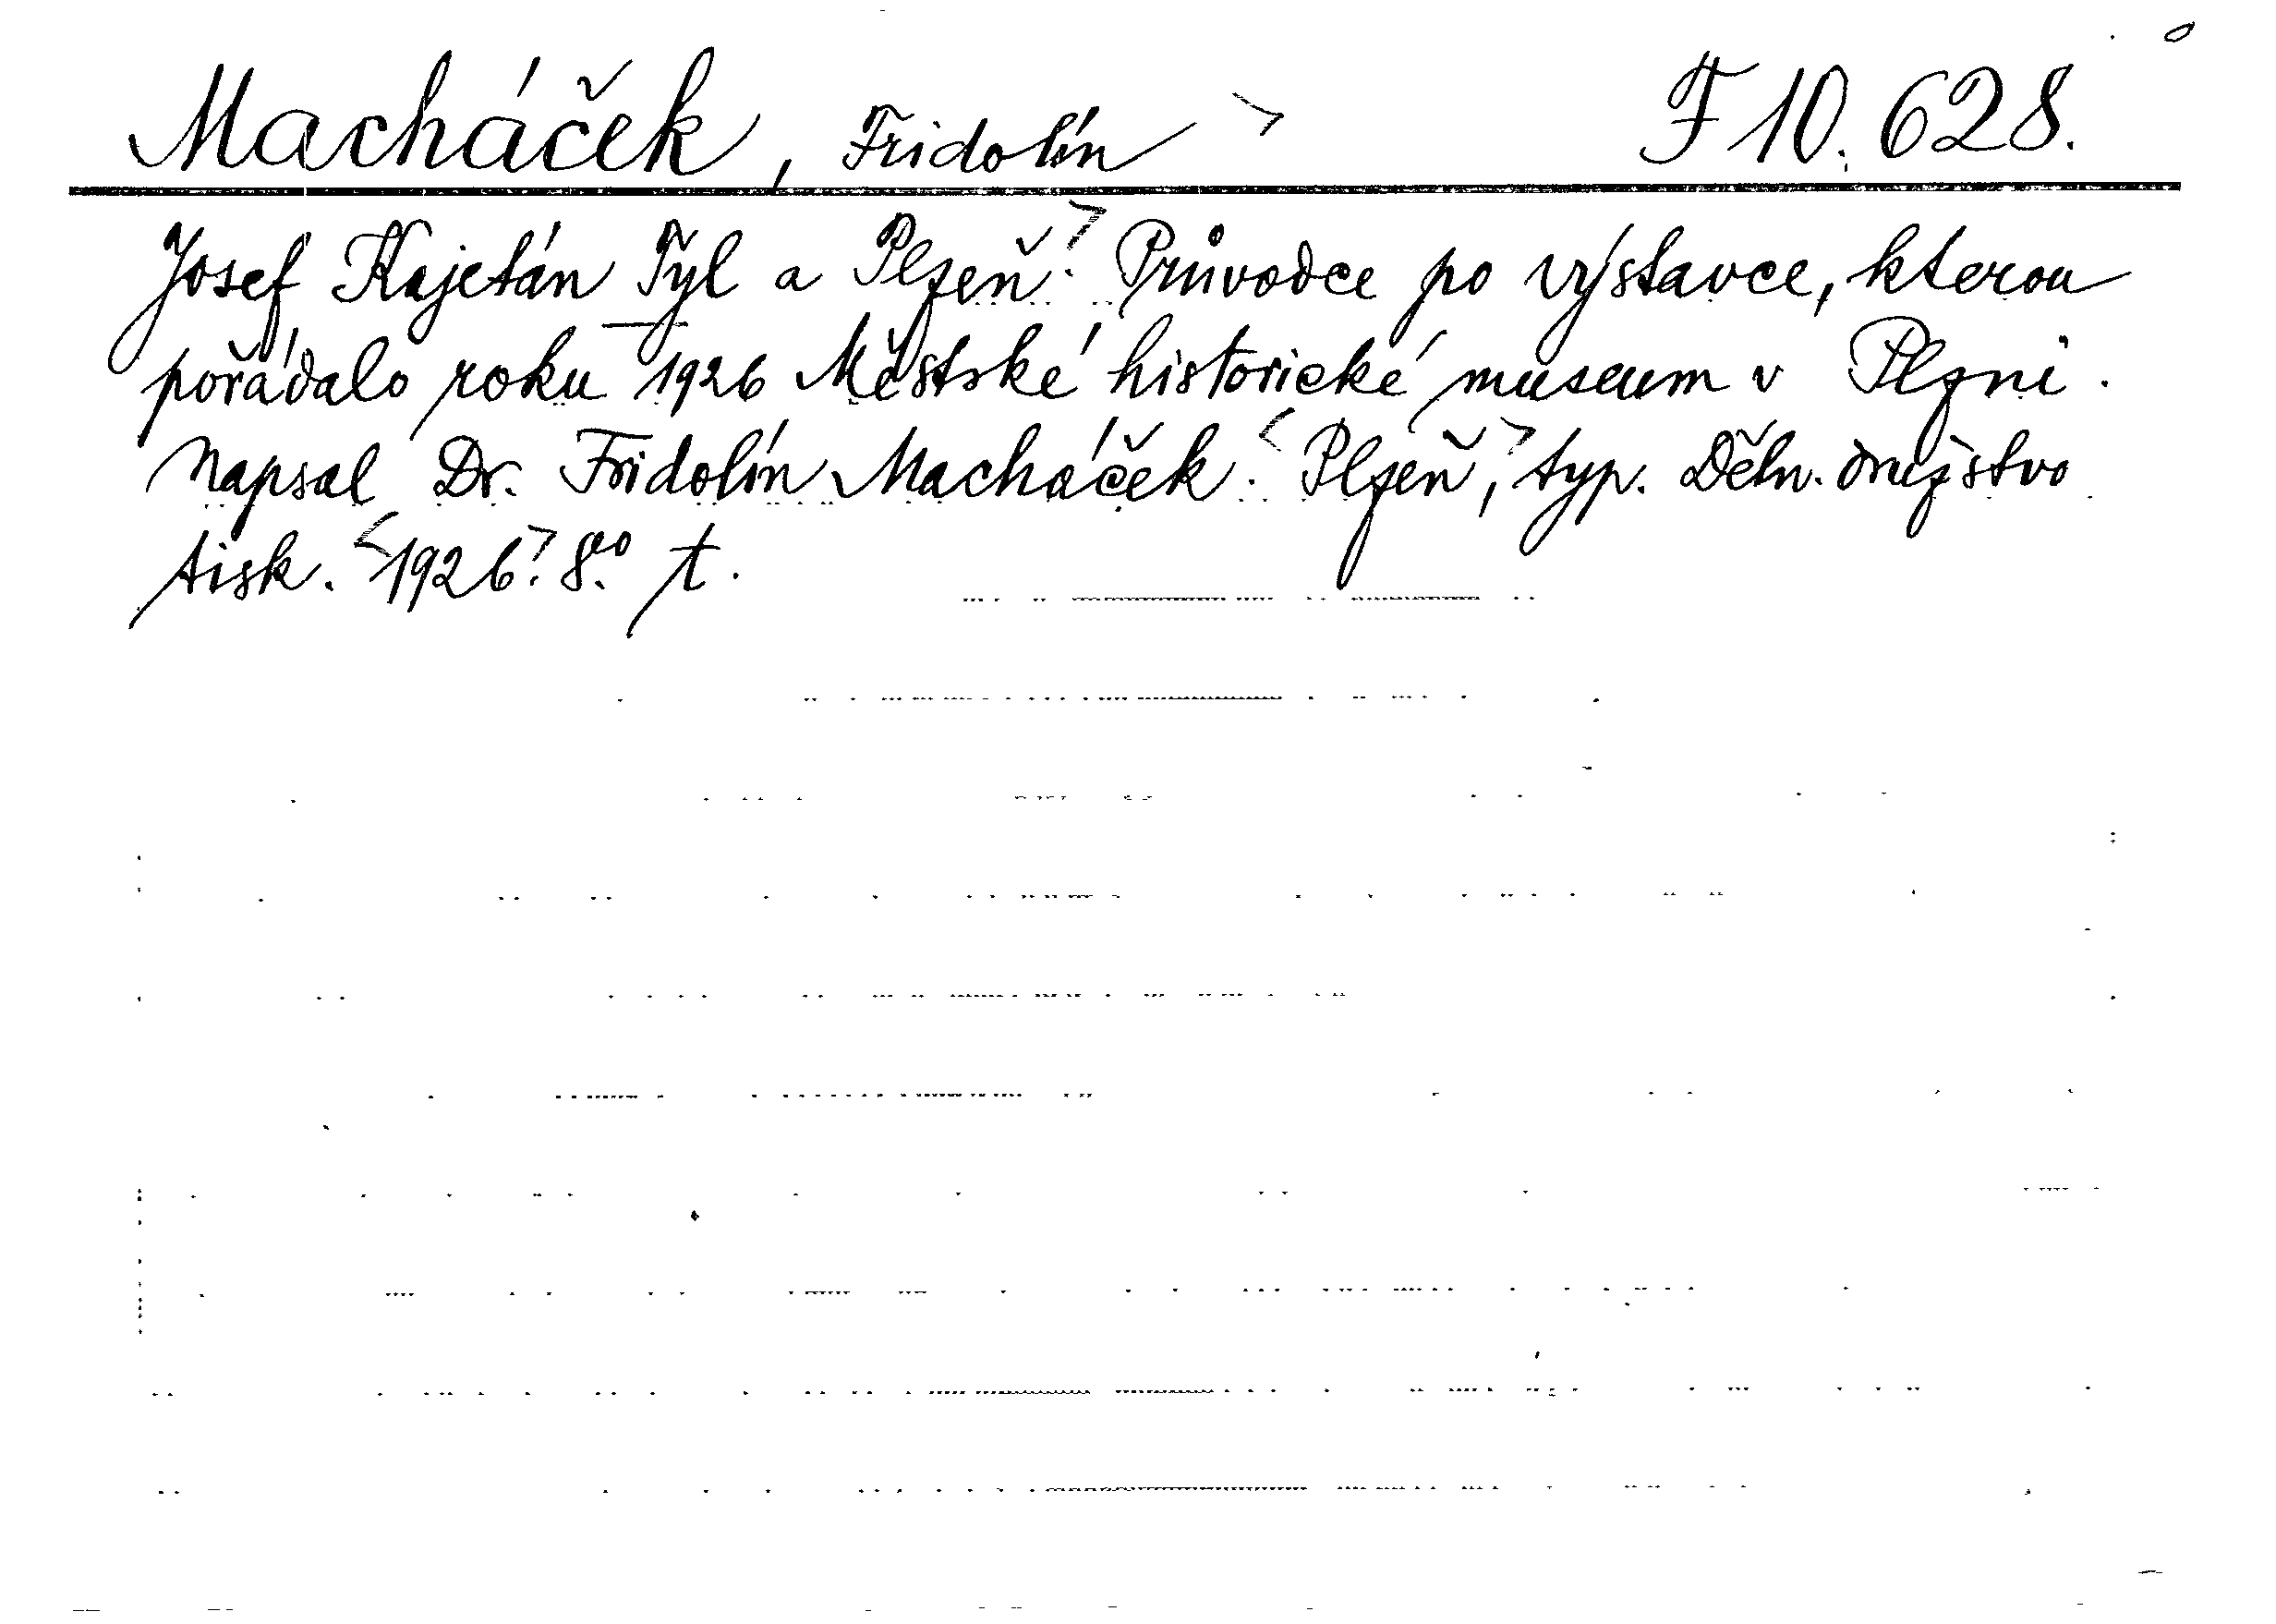 Macháček, Fridolín F 10.628.
Josef Kajetán Tyl a Plzeň. Průvodce po výstavce, kterou
pořádalo roku 1926 Městské historické museum v Plzni.
Napsal Dr. Fridolín Macháček. Plzeň, typ. Děln. družstvo
tisk. 1926. 8.° t.